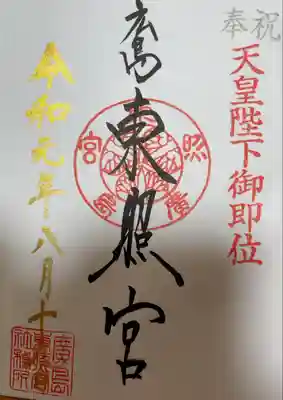 奉祝
天皇陛下御即位
広島東照宮
令和元年八月十
廣島
東照宮
社務所